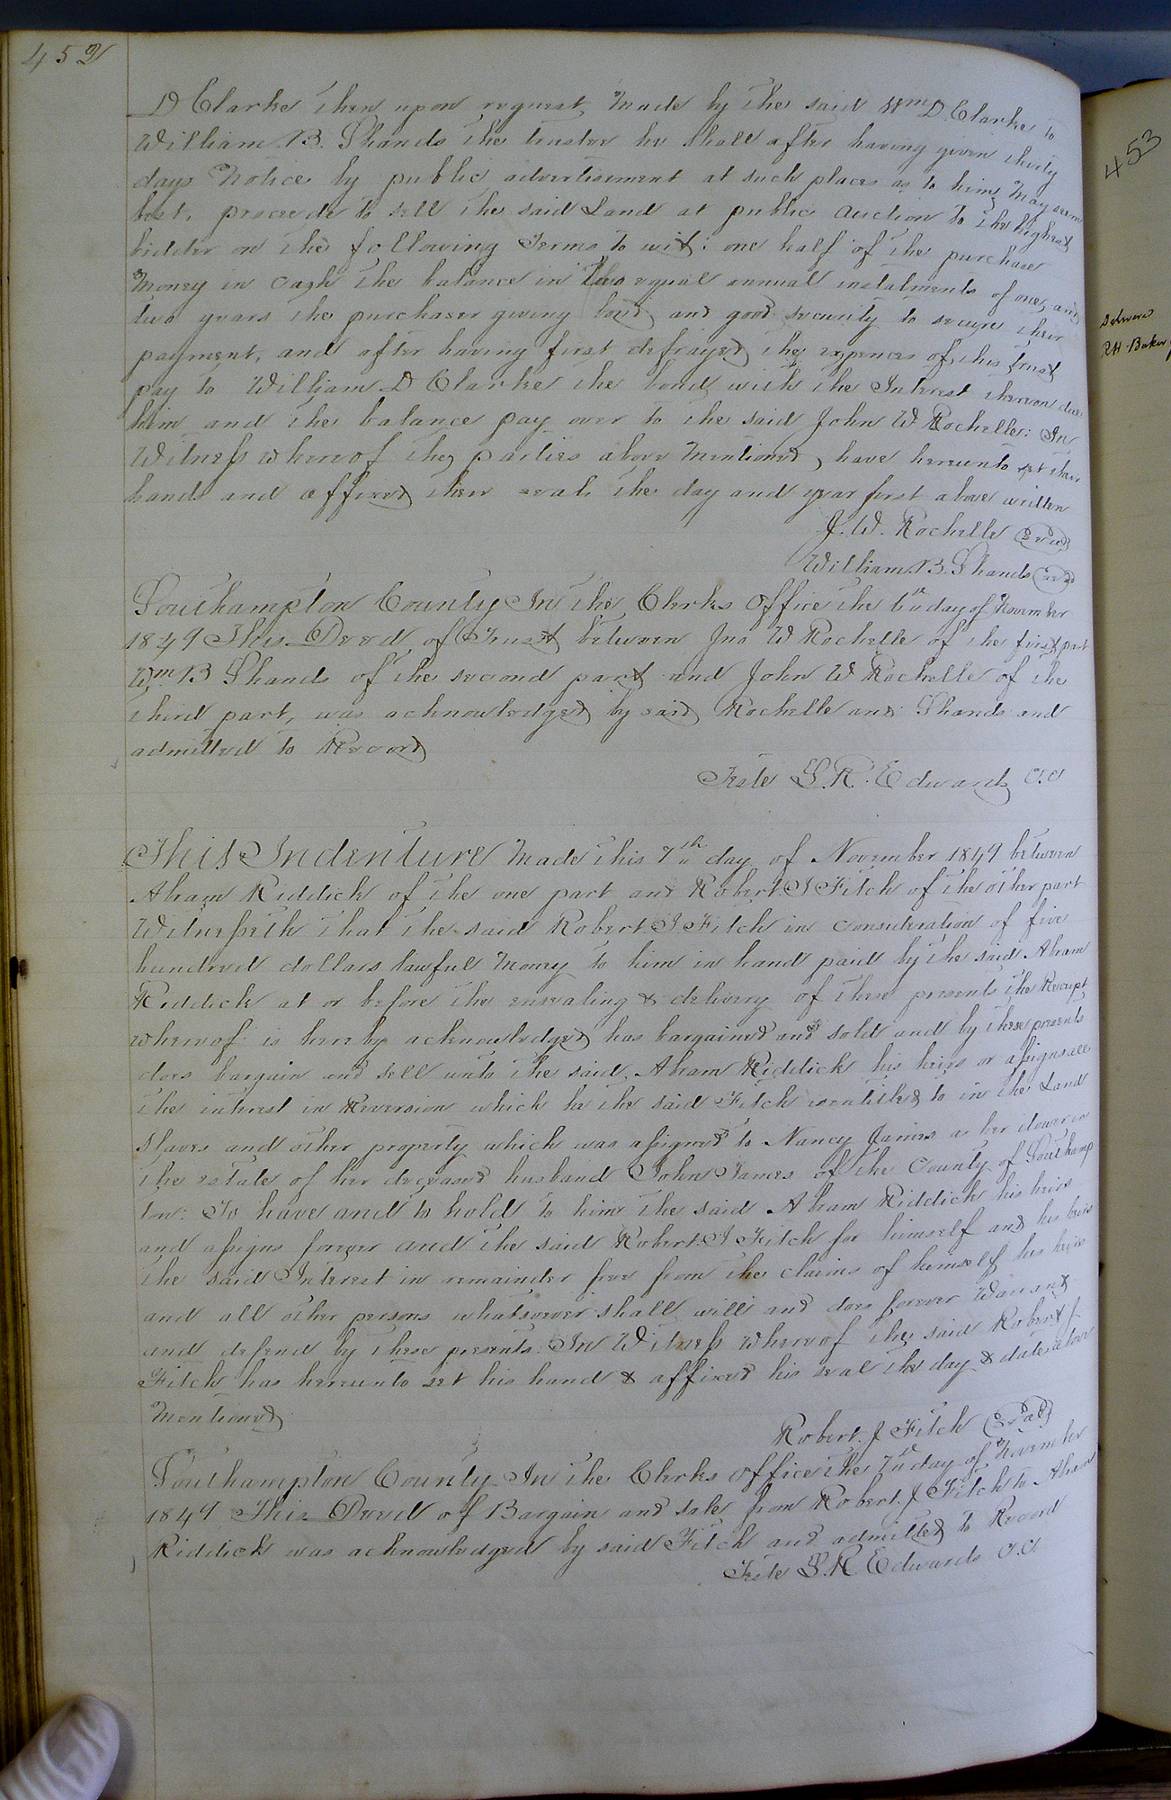 452
D Clarke then upon request made by the said Wm D. Clarke to
William B. Shands the trustee he shall after having given thirty
days notice by public advertisement at such places as to him may seem
best, proceede to sell the said Land at public auction to the highest
bidder on the following terms to wit: one half of the purchase
money in cash the balance in two equal annual instalments of one, and
two years the purchaser giving bond and good security to secure their
payment, and after having first defrayed the expences of this trust
pay to William D Clarke the bond with the Interest thereon due
him and the balance pay over to the said John W Rochelle: In
Witness whereof the parties above mentioned, have hereunto set their
hands and affixed their seals the day and year first above written
J. W. Rochelle (Seal)
William B. Shands (Seal)
Southampton County In the Clerks Office the 6th day of November
1849 This Deed of Trust between Jno W Rochelle of the first part
Wm B Shands of the second part and John W Rochelle of the
third part, was acknowledged by said Rochelle and Shands and
admitted to Record
Teste L. R. Edwards C.C
This Indenture made this 7th day of November 1849 between
Abram Riddick of the one part and Robert J Fitch of the other part
Witnesseth that the said Robert J Fitch in consideration of five
hundred dollars lawful money to him in hand paid by the said Abram
Riddick at or before the ensealing & delivery of these presents the Receipt
whereof is hereby acknowledged has bargained and sold and by these presents
does bargain and sell unto the said Abram Riddick his heirs or assigns all
the interest in Reversion which he the said Fitch is entitled to in the Land
Slaves and other property which was assigned to Nancy James as her dower in
the estate of her deceased husband John James of the County of Southamp
ton: To have and to hold to him the said Abram Riddick his heirs
and assigns forever and the said Robert J Fitch for himself and his heirs
the said Interest in remainder free from the claims of himself his heirs
and all other persons whatsoever shall will and does forever Warrant
and defend by these presents. In Witness whereof the said Robert J.
Fitch has hereunto set his hand & affixed his seal the day & date above
mentioned
Robert. J Fitch (Seal)
Southampton County In the Clerks office the 7th day of November
1849 This Deed of Bargain and Sale from Robert. J Fitch to Abram
Riddick was acknowledged by said Fitch and admitted to Record
Teste L. R Edwards C.C.
453
R H Baker